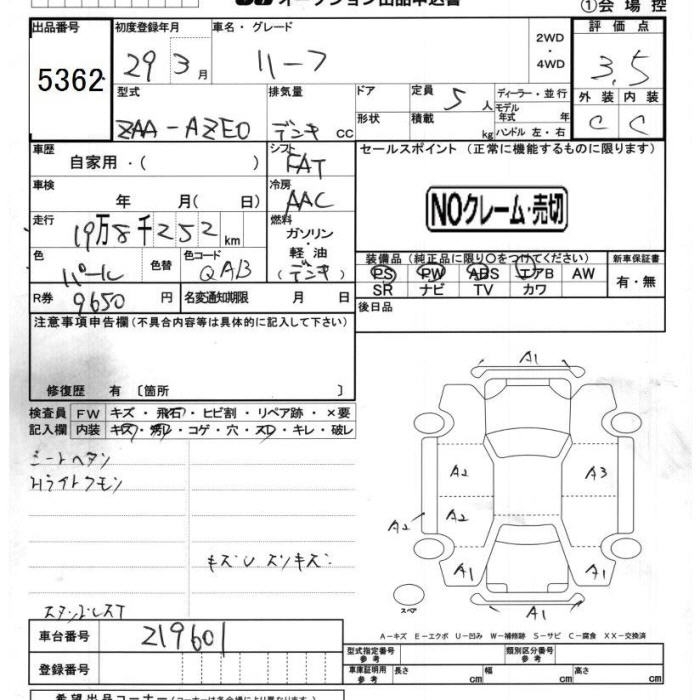 オークション出品申込書
①会場控
出品番号
5362
初度登録年月
29 3月
車名・グレード
リーフ
2WD・4WD
評価点
3.5
型式
ZAA-AZE0
排気量
デンキ cc
ドア
形状
定員
5人
積載
kg
ディーラー・並行
モデル年式 年
ハンドル 左・右
外装
C
内装
C
車歴
自家用・( )
シフト
FAT
セールスポイント (正常に機能するものに限ります)
車検
年 月( 日)
冷房
AAC
NOクレーム・売切
走行
19万8千252km
燃料
ガソリン・軽油
(デンキ)
色
パール
色替
色コード
QAB
装備品(純正品に限り○をつけてください)
PS PW ABS エアB AW
SR ナビ TV カワ
新車保証書
有・無
R券
9650円
名変通知期限 月 日
後日品
注意事項申告欄(不具合内容等は具体的に記入して下さい)
修復歴 有 〔箇所 〕
検査員記入欄
FW キズ・飛石・ヒビ割・リペア跡・×要
内装 キズ・汚レ・コゲ・穴・スレ・キレ・破レ
シートヘタン
Hライトクモン
キズU スンキズ
A1
A2
A3
A2
A2
A1
A1
A1
スペア
A-キズ E-エクボ U-凹み W-補修跡 S-サビ C-腐食 XX-交換済
車台番号
219601
登録番号
型式指定番号
参考
類別区分番号
参考
車庫証明用
参考
長さ cm
幅 cm
高さ cm
希望出品コーナー